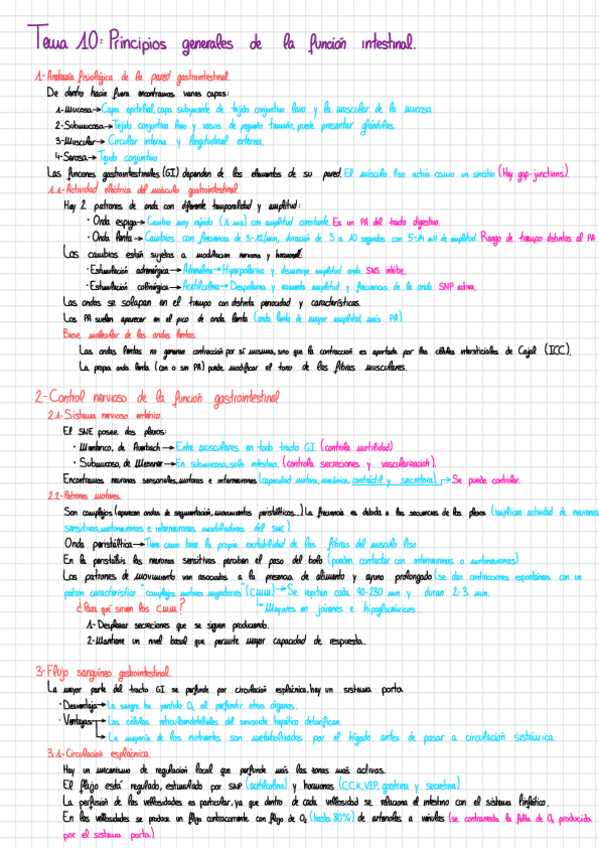 Tema 10: Principios generales de la función intestinal.
1-Anatomía fisiológica de la pared gastrointestinal.
De dentro hacia fuera encontramos varias capas:
1-Mucosa→Capa epitelial, capa subyacente de tejido conjuntivo laxo y la muscular de la mucosa.
2-Submucosa→Tejido conjuntivo laxo y vasos de pequeño tamaño, puede presentar glándulas.
3-Muscular→Circular interna y longitudinal externa.
4-Serosa→Tejido conjuntivo
Las funciones gastrointestinales (GI) dependen de los elementos de su pared. El músculo liso actúa como un sincitio (Hay gap-junctions).
1.1-Actividad eléctrica del músculo gastrointestinal.
Hay 2 patrones de onda con diferente temporalidad y amplitud:
·Onda espiga→Cambio muy rápido (1 ms) con amplitud constante. Es un PA del tracto digestivo.
·Onda lenta→Cambios con frecuencia de 3-12/min, duración de 3 a 10 segundos con 5-14 mV de amplitud. Rango de tiempo distintos al PA
Los cambios están sujetos a modulación nerviosa y hormonal:
·Estimulación adrenérgica→Adrenalina→Hiperpolariza y disminuye amplitud onda. SNS inhibe.
·Estimulación colinérgica→Acetilcolina→Despolariza y aumenta amplitud y frecuencia de la onda. SNP activa.
Las ondas se solapan en el tiempo con distinta periocidad y características.
Los PA suelen aparecer en el pico de onda lenta (onda lenta de mayor amplitud, más PA).
Base molecular de las ondas lentas.
Las ondas lentas no generan contracción por sí mismas, sino que la contracción es aportada por las células intersticiales de Cajal (ICC).
La propia onda lenta (con o sin PA) puede modificar el tono de las fibras musculares.
2-Control nervioso de la función gastrointestinal
2.1-Sistema nervioso entérico.
El SNE posee dos plexos:
·Mientérico, de Auerbach→Entre musculares, en todo tracto GI (controla motilidad)
·Submucoso, de Meissner→En submucosa, solo intestino. (controla secreciones y vascularización).
Encontramos neuronas sensoriales, motoras e interneuronas (capacidad motora, mecánica, contráctil y secretora)→Se puede controlar.
2.2-Patrones motores.
Son complejos (aparecen ondas de segmentación, movimientos peristálticos...) La frecuencia es debida a las secuencias de los plexos (implican actividad de neuronas
sensitivas, motoneuronas e interneuronas modificadoras del SNE).
Onda peristáltica→Tiene como base la propia excitabilidad de las fibras del músculo liso
En la peristalsis las neuronas sensitivas perciben el paso del bolo (pueden contactar con interneuronas o motoneuronas)
Los patrones de movimiento van asociados a la presencia de alimento y ayuno prolongado (se dan contracciones espontáneas con un
patrón característico "complejos motores migradores" (CMM)→Se repiten cada 90-230 min y duran 2-3 min.
Mayores en jóvenes e hipoglucémicos.
¿Para qué sirven los CMM?
1-Desplazar secreciones que se siguen produciendo.
2-Mantiene un nivel basal que permite mayor capacidad de respuesta.
3-Flujo sanguíneo gastrointestinal.
La mayor parte del tracto GI se perfunde por circulación esplácnica, hay un sistema porta.
·Desventaja→La sangre ha perdido O₂ al perfundir otros órganos.
·Ventajas→Las células reticuloendoteliales del sinusoide hepático detoxifican.
→La mayoría de los nutrientes son metabolizados por el hígado antes de pasar a circulación sistémica.
3.1-Circulación esplácnica.
Hay un mecanismo de regulación local que perfunde más las zonas más activas.
El flujo está regulado, estimulado por SNP (acetilcolina) y hormonas (CCK, VIP, gastrina y secretina).
La perfusión de las vellosidades es particular, ya que dentro de cada vellosidad se relaciona el intestino con el sistema linfático.
En las vellosidades se produce un flujo contracorriente con flujo de O₂ (hasta 80%) de arteriolas a vénulas (se contrarresta la falta de O₂ producida
por el sistema porta).